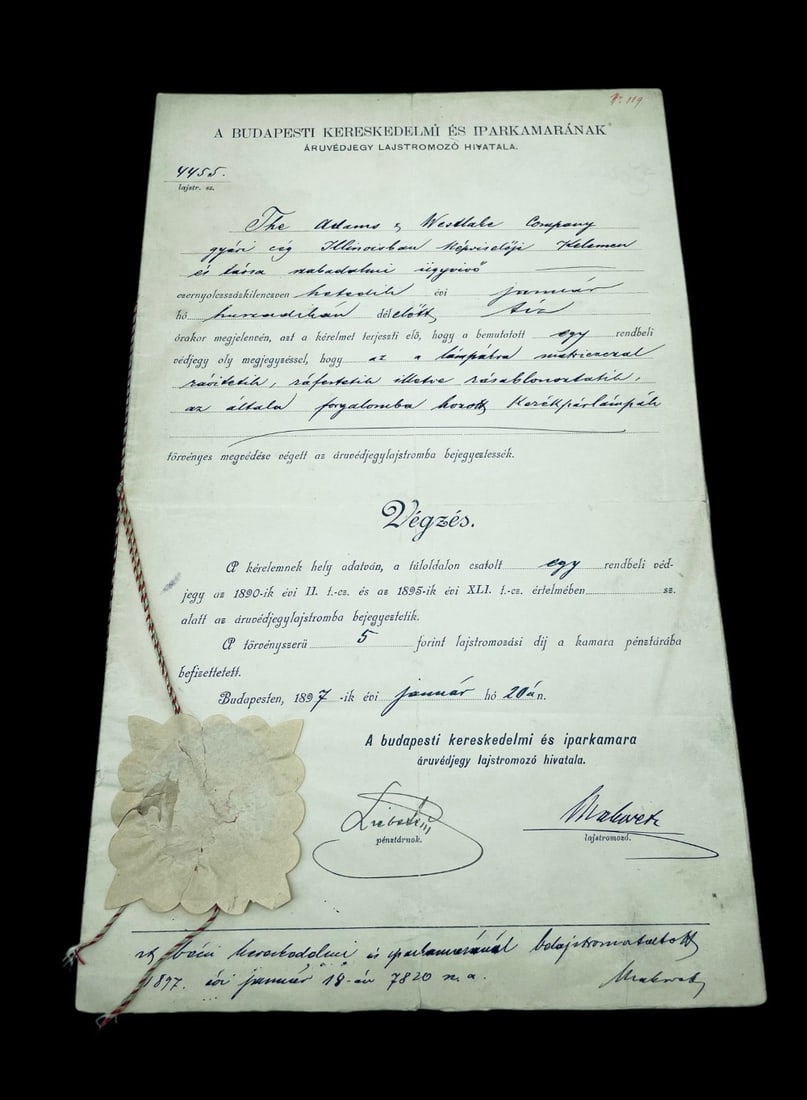 № 119
A BUDAPESTI KERESKEDELMI ÉS IPARKAMARÁNAK
ÁRUVÉDJEGY LAJSTROMOZÓ HIVATALA.
4455.
lajstr. sz.
The Adams & Westlake Company
gyári cég Illinoisban képviselői Kelemen
és társa szabadalmi ügyvivő
ezernyolczszázkilenczven hetedik évi január
hó huszadikán délelőtt tíz
órakor megjelenvén, azt a kérelmet terjeszti elő, hogy a bemutatott egy rendbeli
védjegy oly megjegyzéssel, hogy az a lámpákra
illetve
az általa forgalomba hozott kerékpárlámpák
törvényes megvédése végett az áruvédjegylajstromba bejegyeztessék.
Végzés.
A kérelemnek hely adatván, a túloldalon csatolt egy rendbeli véd-
jegy az 1890-ik évi II. t.-cz. és az 1895-ik évi XLI. t.-cz. értelmében sz.
alatt az áruvédjegylajstromba bejegyeztetik.
A törvényszerü 5 forint lajstromozási dij a kamara pénztárába
befizettetett.
Budapesten, 1897-ik évi január hó 20án.
A budapesti kereskedelmi és iparkamara
áruvédjegy lajstromozó hivatala.
pénztárnok.
lajstromozó.
bécsi kereskedelmi és iparkamaránál belajstromoztatott
1897. évi január 18-án 7820 sz. a.